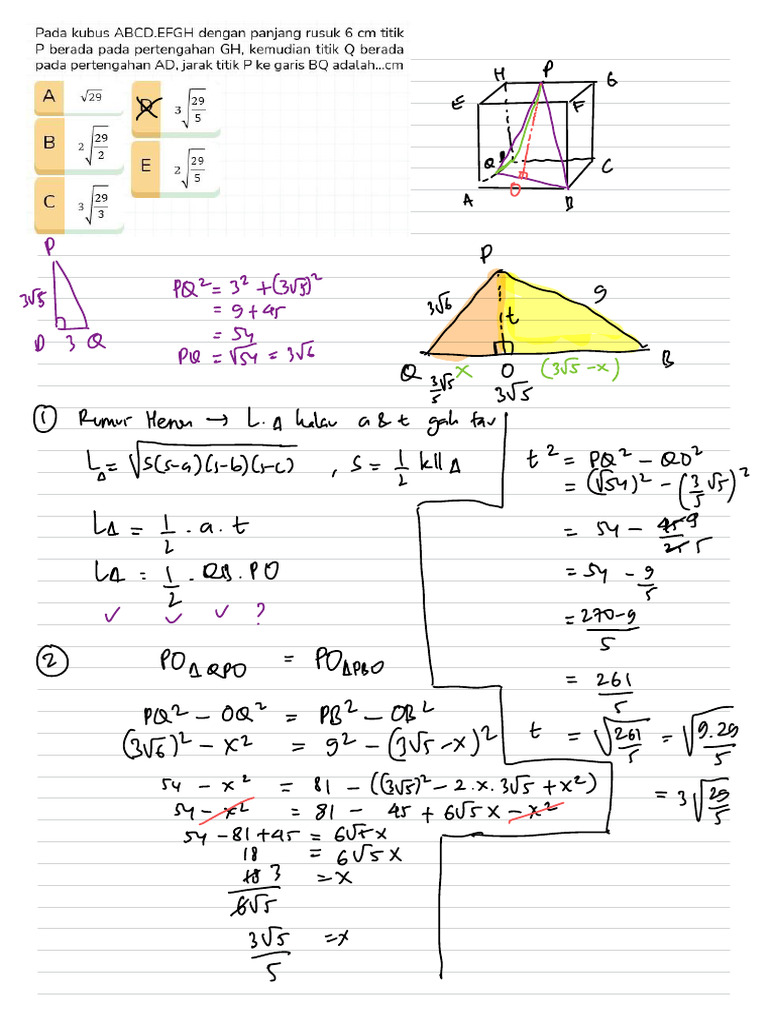 Pada kubus ABCD.EFGH dengan panjang rusuk 6 cm titik
P berada pada pertengahan GH, kemudian titik Q berada
pada pertengahan AD, jarak titik P ke garis BQ adalah...cm
A √29
B 2√(29/2)
C 3√(29/3)
D 3√(29/5)
E 2√(29/5)
H P G
E F
Q C
A O B
P
3√5
D 3 Q
PQ² = 3² + (3√5)²
= 9 + 45
= 54
PQ = √54 = 3√6
P
3√6 t 9
Q x O (3√5 - x) B
3√5/5 3√5
① Rumus Heron → L.Δ kalau a & t gak tau
LΔ = √(s(s-a)(s-b)(s-c)) , s = 1/2 kll Δ
LΔ = 1/2 . a . t
LΔ = 1/2 . QB . PO
✓ ✓ ✓ ?
② PO Δ QPO = PO Δ PBO
PQ² - OQ² = PB² - OB²
(3√6)² - x² = 9² - (3√5 - x)²
54 - x² = 81 - ((3√5)² - 2.x.3√5 + x²)
54 - x² = 81 - 45 + 6√5 x - x²
54 - 81 + 45 = 6√5 x
18 = 6√5 x
18 3/6√5 = x
3√5/5 = x
t² = PQ² - QO²
= (√54)² - (3/5 √5)²
= 54 - 45 9/25 5
= 54 - 9/5
= 270-9/5
= 261/5
t = √(261/5) = √(9.29/5)
= 3√(29/5)